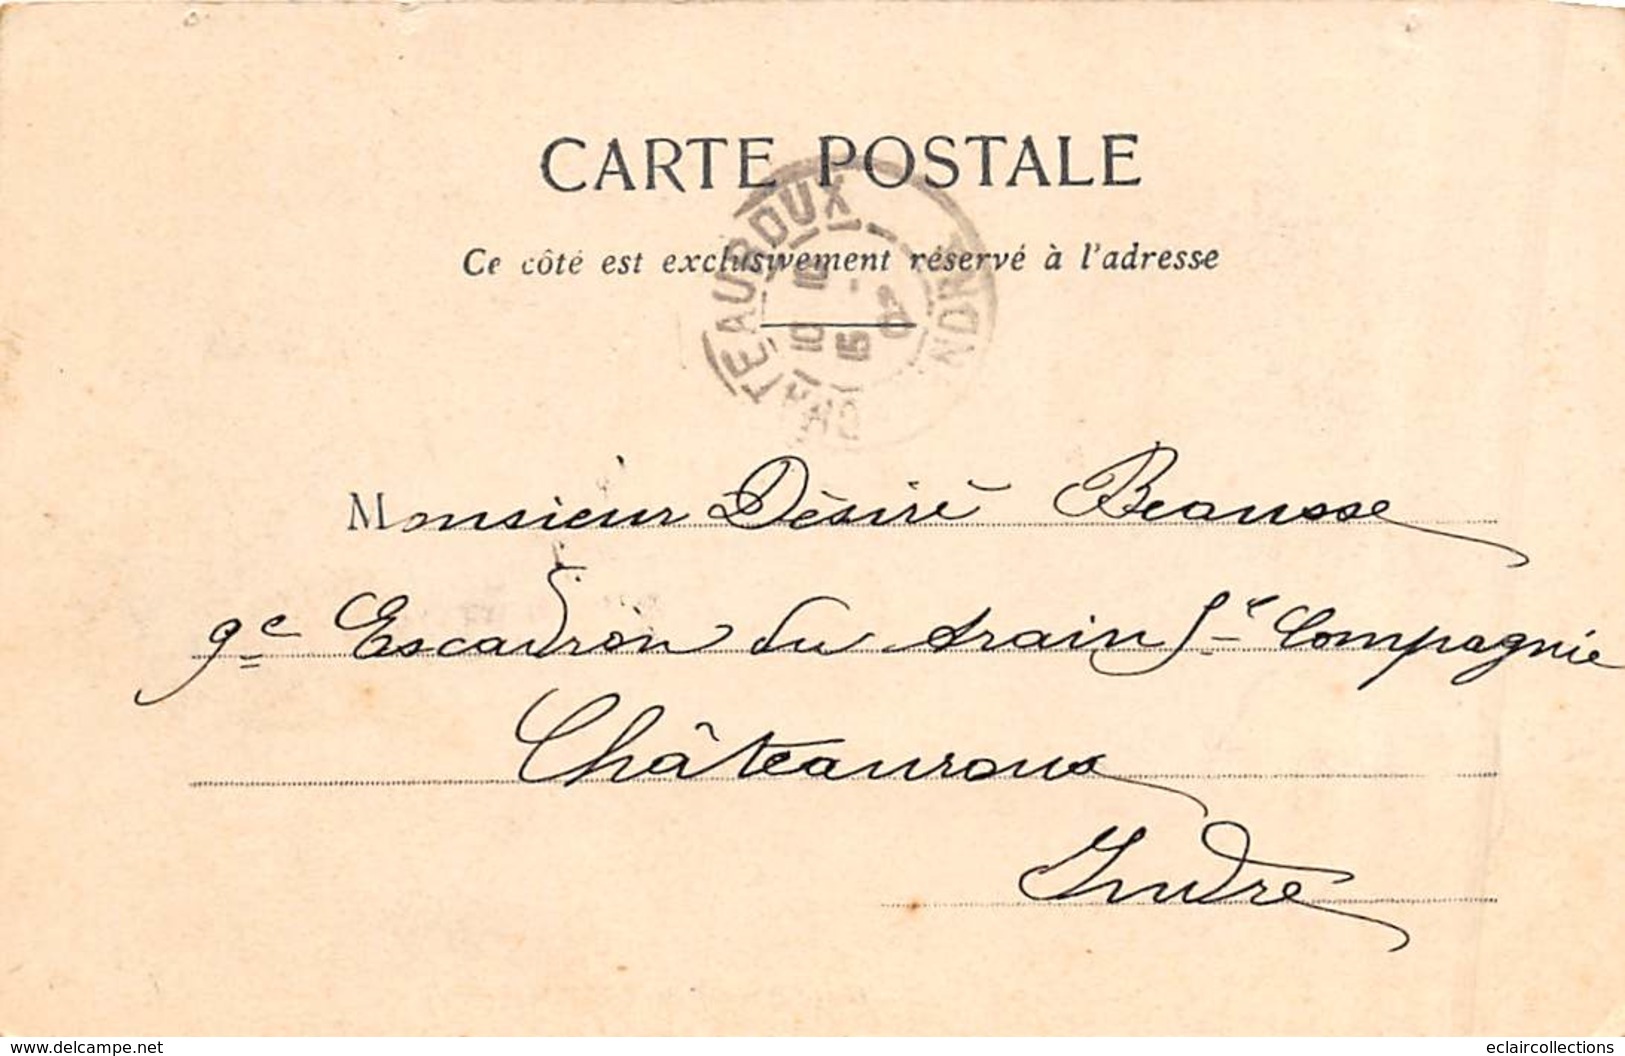 CARTE POSTALE
Ce côté est exclusivement réservé à l'adresse
CHATEAUROUX
INDRE
10 10
15
02
Monsieur Désiré Beausse
9e Escadron du train Ste Compagnie
Châteauroux
Indre
www.delcampe.net
eclaircollections